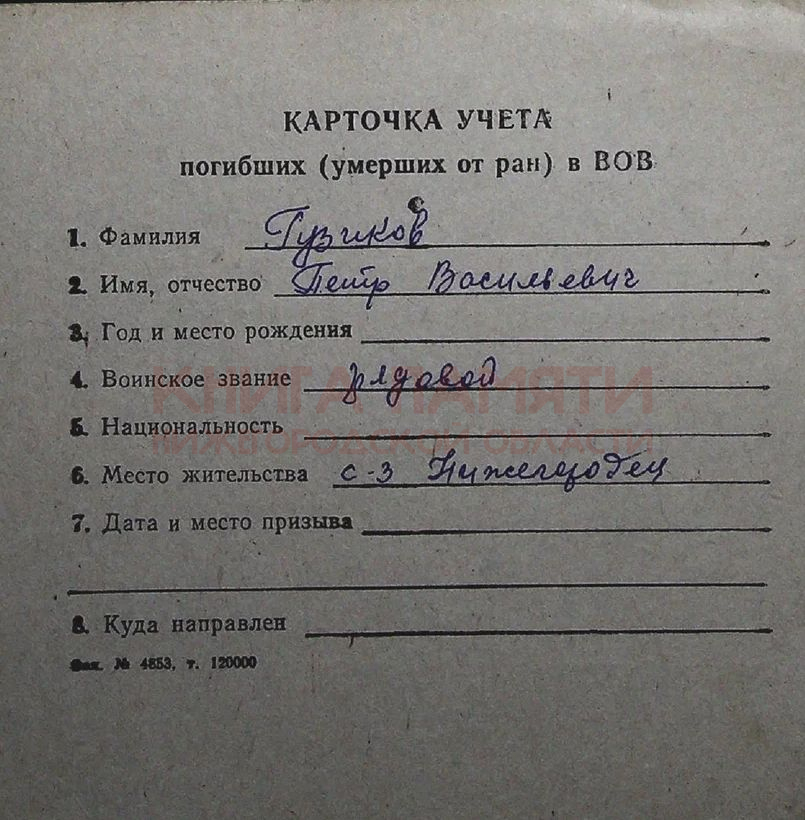 КАРТОЧКА УЧЕТА
погибших (умерших от ран) в ВОВ
1. Фамилия Гузиков
2. Имя, отчество Петр Васильевич
3. Год и место рождения
4. Воинское звание рядовой
КНИГА ПАМЯТИ
5. Национальность
НИЖЕГОРОДСКОЙ ОБЛАСТИ
6. Место жительства с-з Нижегородец
7. Дата и место призыва
8. Куда направлен
Зак. № 4853, т. 120000